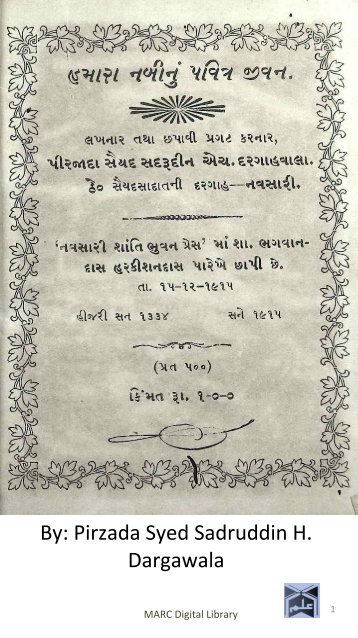 હમારા નબીનું પવિત્ર જીવન.
લખનાર તથા છપાવી પ્રગટ કરનાર,
પીરજાદા સૈયદ સદરૂદીન એચ. દરગાહવાલા.
ઠે૦ સૈયદસાદાતની દરગાહ—નવસારી.
‘નવસારી શાંતિ ભુવન પ્રેસ’ માં શા. ભગવાન-
દાસ હરકીશનદાસ પારેખે છાપી છે.
તા. ૧૫-૧૨-૧૯૧૫
હીજરી સન ૧૩૩૪ સને ૧૯૧૫
(પ્રત ૫૦૦)
કિંમત રૂા. ૧-૦-૦
By: Pirzada Syed Sadruddin H.
Dargawala
MARC Digital Library
علم
1